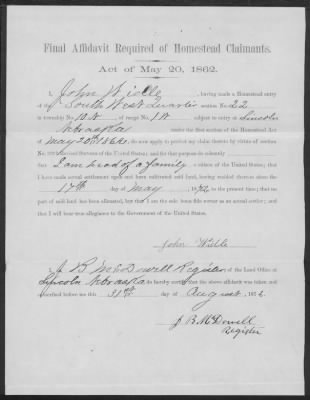 Final Affidavit Required of Homestead Claimants.
Act of May 20, 1862.
I, John Wielle, having made a Homestead entry
of the South West Quarter section No. 22
in township No. 10 N, of range No. 1 W subject to entry at Lincoln
Nebraska under the first section of the Homestead Act
of May 20th 1862, do now apply to perfect my claim thereto by virtue of section
Revised Statutes of the United States; and for that purpose do solemnly
that I am head of a family a citizen of the United States; that I
have made actual settlement upon and have cultivated said land, having resided thereon since the
17th day of May, 1872, to the present time; that no
part of said land has been alienated, but that I am the sole bona fide owner as an actual settler; and
that I will bear true allegiance to the Government of the United States.
John Wielle
I, J B McDowell Register, of the Land Office at
Lincoln Nebraska do hereby certify that the above affidavit was taken and
subscribed before me this 31st day of August, 187
J B McDowell
Register